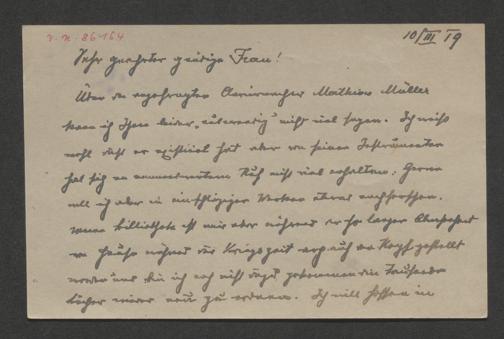 r. n. 86164
10/III 19
Sehr geehrter gnädige Frau!
Über den angefragten Claviermacher Mathias Müller
kann ich Ihnen leider „auswendig“ nicht viel sagen. Ich weiß
wohl daß er existiert hat aber von seinen Instrumenten
hat sich an Ruf nicht viel erhalten. Gerne
will ich aber in einschlägigen Werken etwas nachforschen.
meine Bibliothek ist mir aber während so langer Abwesenheit
im Hause während der Kriegszeit arg auf den Kopf gestellt
worden und bin ich noch nicht dazu gekommen die Tausende
Bücher wieder neu zu ordnen. Ich will hoffen in